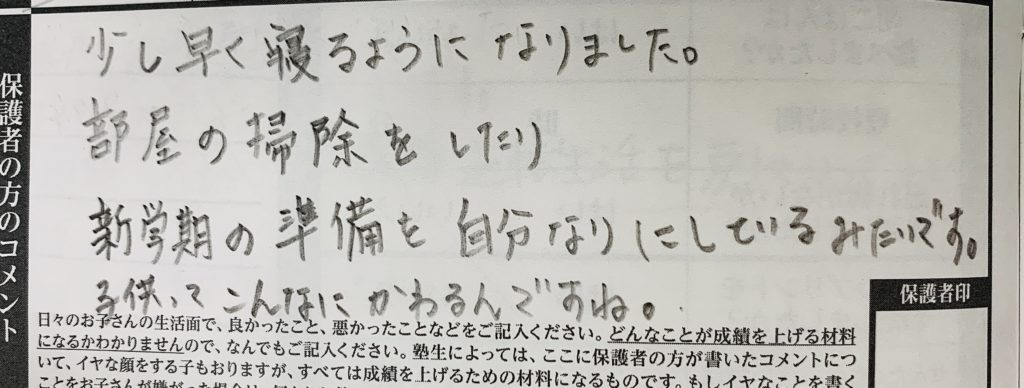 少し早く寝るようになりました。
部屋の掃除をしたり
新学期の準備を自分なりにしているみたいです。
子供ってこんなにかわるんですね。
保護者の方のコメント
保護者印
日々のお子さんの生活面で、良かったこと、悪かったことなどをご記入ください。どんなことが成績を上げる材料
になるかわかりませんので、なんでもご記入ください。塾生によっては、ここに保護者の方が書いたコメントにつ
いて、イヤな顔をする子もおりますが、すべては成績を上げるための材料になるものです。もしイヤなことを書く